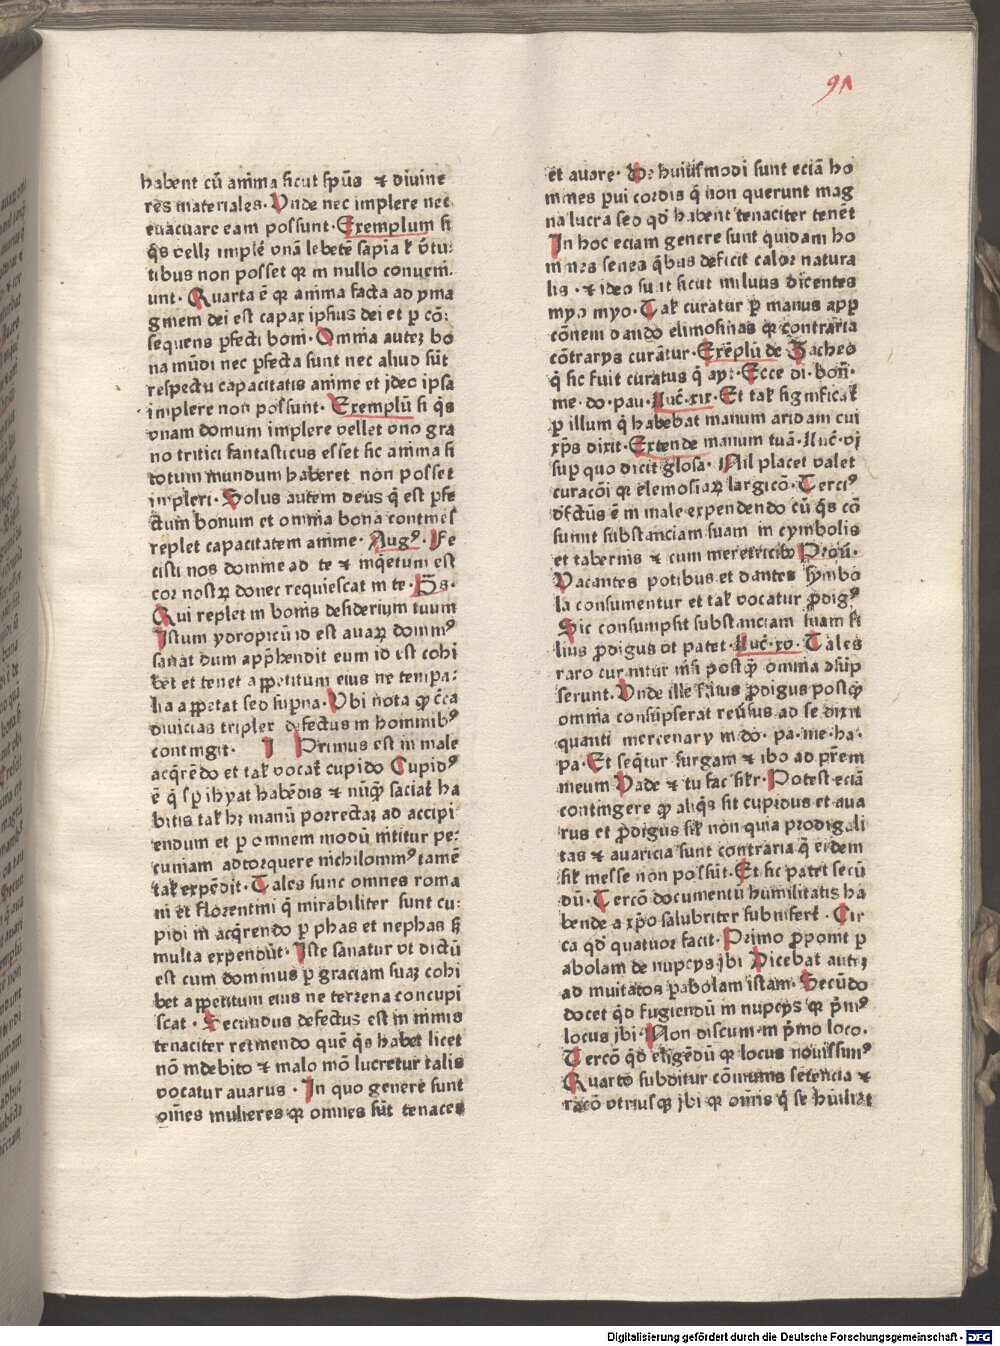 91
habent cū anima sicut spūs ⁊ diuine
res materiales. Vnde nec implere nec
euacuare eam possunt. Exemplum si
q̄s vellꝫ implē vnā lebetē sapia ł v̄tu-
tibus non posset qꝛ in nullo conueni-
unt. Quarta ē qꝛ anima facta ad yma
ginem dei est capax ipsius dei et ꝑ cō-
sequens ꝑfecti boni. Omnia autēꝫ bo
na mūdi nec ꝑfecta sunt nec aliud sūt
respectu capacitatis anime et jdeo ipsa
implere non possunt. Exemplū si q̄s
vnam domum implere vellet vno gra
no tritici fantasticus esset sic anima si
totum mundum haberet non posset
impleri. Solus autem deus q̄ est ꝑfe
ctum bonum et omnia bona continēs
replet capacitatem anime. Augꝰ. Fe
cisti nos domine ad te ⁊ inq̄etum est
cor nostꝝ donec requiescat in te. Ps.
Qui replet in bonis desiderium tuum
Istum ydropicū id est auaꝝ dominꝰ
sanat dum app̄hendit eum id est cohi
bet et tenet appetitum eius ne tempa-
lia appetat sed supna. Vbi nota ꝙ c̄ca
diuicias tripler defectus in hominibꝰ
contingit. I Primus est in male
acq̄rēdo et tał vocał cupido Cupidꝰ
ē q̄ sp ihyat habēdis ⁊ nūꝙ̄ saciał ha
bitis tał hꝫ manū porrectaꝫ ad accipi
endum et ꝑ omnem modū nititur pe-
cuniam adtorquere nichilominꝰ tamē
tał expēdit. Tales sunc omnes roma
ni et florentini q̄ mirabiliter sunt cu-
pidi in acq̄rendo ꝑ phas et nephas ꝫ
multa expendūt. Iste sanatur vt dictū
est cum dominus ꝑ graciam suaꝫ cohi
bet appetitum eius ne terrena concupi
scat. Secundus defectus est in nimis
tenaciter retinendo quē q̄s habet licet
nō indebito ⁊ malo mō lucretur talis
vocatur auarus. In quo genere sunt
om̄es mulieres qꝛ omnes sūt tenaces
et auare. De huiusmodi sunt eciā ho
mines pui cordis q̄ non querunt mag
na lucra sed qd̄ habent tenaciter tenēt
In hoc eciam genere sunt quidam ho
mines senes q̄bus deficit calor natura
lis. ⁊ ideo sunt sicut miluus dicentes
myo myo. Tał curatur ꝑ manus app
cōnem dando elimosinas qꝛ contraria
cōtrarys curātur. Exēplū de Zacheo
q̄ sic fuit curatus q̄ ayt. Ecce di. bon.
me. do. pau. Luc̄. xix. Et tał significał
ꝑ illum q̄ habebat manum aridam cui
xp̄s dixit. Extende manum tuā. Luc̄. vj
suꝑ quo dicit glosa. Nil placet valet
curacōi qꝛ elemosiaꝝ largicō. Tercꝰ
dfctūs ē in male expendendo cū q̄s cō
sumit substanciam suam in cymbolis
et tabernis ⁊ cum meretricibꝰ Prou̅.
Vacantes potibus et dantes symbo
la consumentur et tał vocatur ꝓdigꝰ
Sic consumpsit substanciam suam fi
lius ꝓdigus vt patet. Luc̄. xv. Tales
raro curantur nisi postꝙ̄ omnia ɔsūp
serunt. Vnde ille filius ꝓdigus postꝙ̄
omnia consūpserat reūsus ad se dixit
quanti mercenary in do. pa. me. ha.
pa. Et seq̄tur surgam ⁊ ibo ad pr̄em
meum Vade ⁊ tu fac siłr. Potest eciā
contingere ꝙ aliq̄s sit cupidus et aua
rus et ꝓdigus sił non quia prodigali
tas ⁊ auaricia sunt contraria q̄ eidem
sił inesse non possūt. Et sic patet secū
dū. Tercō documentū humilitatis ha
bende a xp̄o salubriter subnifert̄. Cir
ca qd̄ quatuor facit. Primo ꝓponit ꝑ
abolam de nupcys jbi Dicebat autē
ad inuitatos ꝑabolam istam. Secūdo
docet qd̄ fugiendū in nupcys qꝛ p̄mꝰ
locus jbi. Non discum. in p̄mo loco.
Tercō qd̄ eligēdū qꝛ locus nouissimꝰ
Quarto subditur cōmunis setēncia ⁊
racō vtriusqꝫ jbi qꝛ om̄is q̄ se humliat
Digitalisierung gefördert durch die Deutsche Forschungsgemeinschaft - DFG